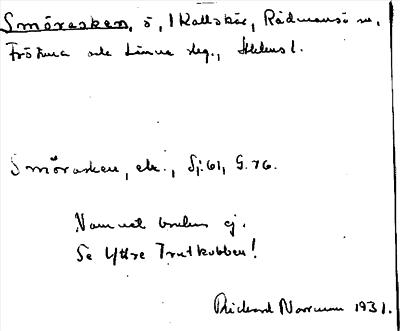 Smörasken, ö, i Kallskär, Rådmansö sn,
Frötuna och Länna slg., Sthlms l.
Smörasken, ek., Sj. 61, G. 76.
Namnet brukas ej.
Se Yttre Trutkobben!
Rickard Norrman 1931.